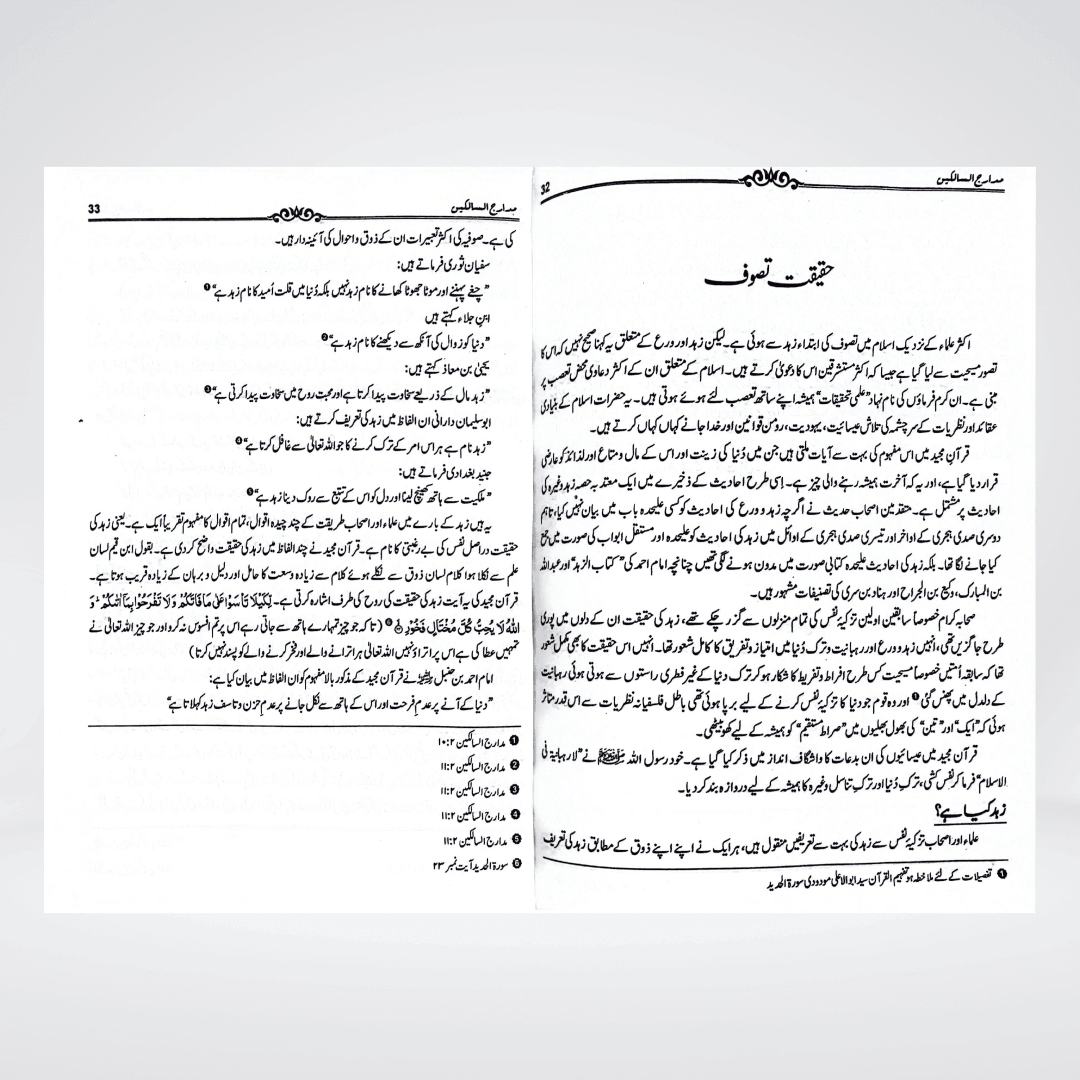 مدارج السالکین
32
حقیقت تصوف
اکثر علماء کے نزدیک اسلام میں تصوف کی ابتداء زہد سے ہوئی ہے۔ لیکن زہد اور ورع کے متعلق یہ کہنا صحیح نہیں کہ اس کا
تصور مسیحیت سے لیا گیا ہے جیسا کہ اکثر مستشرقین اس کا دعویٰ کرتے ہیں۔ اسلام کے متعلق ان کے اکثر دعاوی محض تعصب پر
مبنی ہے۔ ان کرم فرماؤں کی نام نہاد "علمی تحقیقات" ہمیشہ اپنے ساتھ تعصب لئے ہوئے ہوتی ہیں۔ یہ حضرات اسلام کے بنیادی
عقائد اور نظریات کے سرچشمہ کی تلاش عیسائیت، یہودیت، رومن قوانین اور خدا جانے کہاں کہاں کرتے ہیں۔
قرآن مجید میں اس مفہوم کی بہت سے آیات ملتی ہیں جن میں دُنیا کی زینت اور اس کے مال و متاع اور لذائذ کو عارضی
قرار دیا گیا ہے، اور یہ کہ آخرت ہمیشہ رہنے والی چیز ہے۔ اِسی طرح احادیث کے ذخیرے میں ایک معتد بہ حصہ زہد وغیرہ کی
احادیث پر مشتمل ہے۔ متقدمین اصحاب حدیث نے اگرچہ زہد و ورع کی احادیث کو کسی علیحدہ باب میں بیان نہیں کیا، تاہم
دوسری صدی ہجری کے اواخر اور تیسری صدی ہجری کے اوائل میں زہد کی احادیث کو علیحدہ اور مستقل ابواب کی صورت میں جمع
کیا جانے لگا تھا۔ بلکہ زہد کی احادیث علیحدہ کتابی صورت میں مدون ہونے لگی تھیں چنانچہ امام احمد کی "کتاب الزہد" اور عبداللہ
بن المبارک، وکیع بن الجراح اور ہناد بن سری کی تصنیفات مشہور ہیں۔
صحابہ کرام خصوصاً سابقین اولین تزکیۂ نفس کی تمام منزلوں سے گزر چکے تھے، زہد کی حقیقت ان کے دلوں میں پوری
طرح جاگزیں تھی، انہیں زہد و ورع اور رہبانیت و ترک دُنیا میں امتیاز و تفریق کا کامل شعور تھا۔ انہیں اس حقیقت کا بھی مکمل شعور
تھا کہ سابقہ اُمتیں خصوصاً مسیحیت کس طرح افراط و تفریط کا شکار ہو کر ترک دنیا کے غیر فطری راستوں سے ہوتی ہوئی رہبانیت
کے دلدل میں پھنس گئی ❶ اور وہ قوم جو دنیا کا تزکیۂ نفس کرنے کے لیے برپا ہوئی تھی باطل فلسفیانہ نظریات سے اس قدر متاثر
ہوئی کہ "ایک" اور "تین" کی بھول بھلیوں میں "صراط مستقیم" کو ہمیشہ کے لیے کھو بیٹھی۔
قرآن مجید میں عیسائیوں کی ان بدعات کا واشگاف انداز میں ذکر کیا گیا ہے۔ خود رسول اللہ ﷺ نے "لا رہبانیۃ فی
الاسلام" فرما کر نفس کشی، ترک دُنیا اور ترک تناسل وغیرہ کا ہمیشہ کے لیے دروازہ بند کر دیا۔
زہد کیا ہے؟
علماء اور اصحاب تزکیۂ نفس سے زہد کی بہت سے تعریفیں منقول ہیں، ہر ایک نے اپنے اپنے ذوق کے مطابق زہد کی تعریف
❶ تفصیلات کے لئے ملاحظہ ہو تفہیم القرآن سید ابوالاعلیٰ مودودی سورۃ الحدید
مدارج السالکین
33
کی ہے۔ صوفیہ کی اکثر تعبیرات ان کے ذوق و احوال کی آئینہ دار ہیں۔
سفیان ثوری فرماتے ہیں:
"چغے پہننے اور موٹا جھوٹا کھانے کا نام زہد نہیں بلکہ دُنیا میں قلت اُمید کا نام زہد ہے" ❶
ابنِ جلاء کہتے ہیں
"دنیا کو زوال کی آنکھ سے دیکھنے کا نام زہد ہے" ❷
یحییٰ بن معاذ کہتے ہیں:
"زہد مال کے ذریعے سخاوت پیدا کرتا ہے اور محبت روح میں سخاوت پیدا کرتی ہے" ❸
ابو سلیمان دارانی ان الفاظ میں زہد کی تعریف کرتے ہیں:
"زہد نام ہے ہر اس امر کے ترک کرنے کا جو اللہ تعالیٰ سے غافل کرتا ہے" ❹
جنید بغدادی فرماتے ہیں:
"ملکیت سے ہاتھ کھینچ لینا اور دل کو اس کے تتبع سے روک دینا زہد ہے" ❺
یہ ہیں زہد کے بارے میں علماء اور اصحاب طریقت کے چند چیدہ اقوال، تمام اقوال کا مفہوم تقریباً ایک ہے۔ یعنی زہد کی
حقیقت دراصل نفس کی بے رغبتی کا نام ہے۔ قرآن مجید نے چند الفاظ میں زہد کی حقیقت واضح کر دی ہے۔ بقول ابن قیم لسان
علم سے نکلا ہوا کلام لسان ذوق سے نکلے ہوئے کلام سے زیادہ وسعت کا حامل اور دلیل و برہان کے زیادہ قریب ہوتا ہے۔
قرآن مجید کی یہ آیت زہد کی حقیقت کی روح کی طرف اشارہ کرتی ہے۔ لِّكَيْلَا تَأْسَوْا عَلٰى مَا فَاتَكُمْ وَلَا تَفْرَحُوْا بِمَآ اٰتٰىكُمْ ۭ وَ
اللّٰهُ لَا يُحِبُّ كُلَّ مُخْتَالٍ فَخُوْرِ ❻ (تاکہ جو چیز تمہارے ہاتھ سے جاتی رہے اس پر تم افسوس نہ کرو اور جو چیز اللہ تعالیٰ نے
تمہیں عطا کی ہے اس پر اتراؤ نہیں اللہ تعالیٰ ہر اترانے والے اور فخر کرنے والے کو پسند نہیں کرتا)
امام احمد بن حنبل رحمہ اللہ نے قرآن مجید کے مذکور بالا مفہوم کو ان الفاظ میں بیان کیا ہے:
"دنیا کے آنے پر عدم فرحت اور اس کے ہاتھ سے نکل جانے پر عدم حزن و تاسف زہد کہلاتا ہے"
❶ مدارج السالکین ۲:۱۰
❷ مدارج السالکین ۲:۱۱
❸ مدارج السالکین ۲:۱۱
❹ مدارج السالکین ۲:۱۱
❺ مدارج السالکین ۲:۱۱
❻ سورۃ الحدید آیت نمبر ۲۳